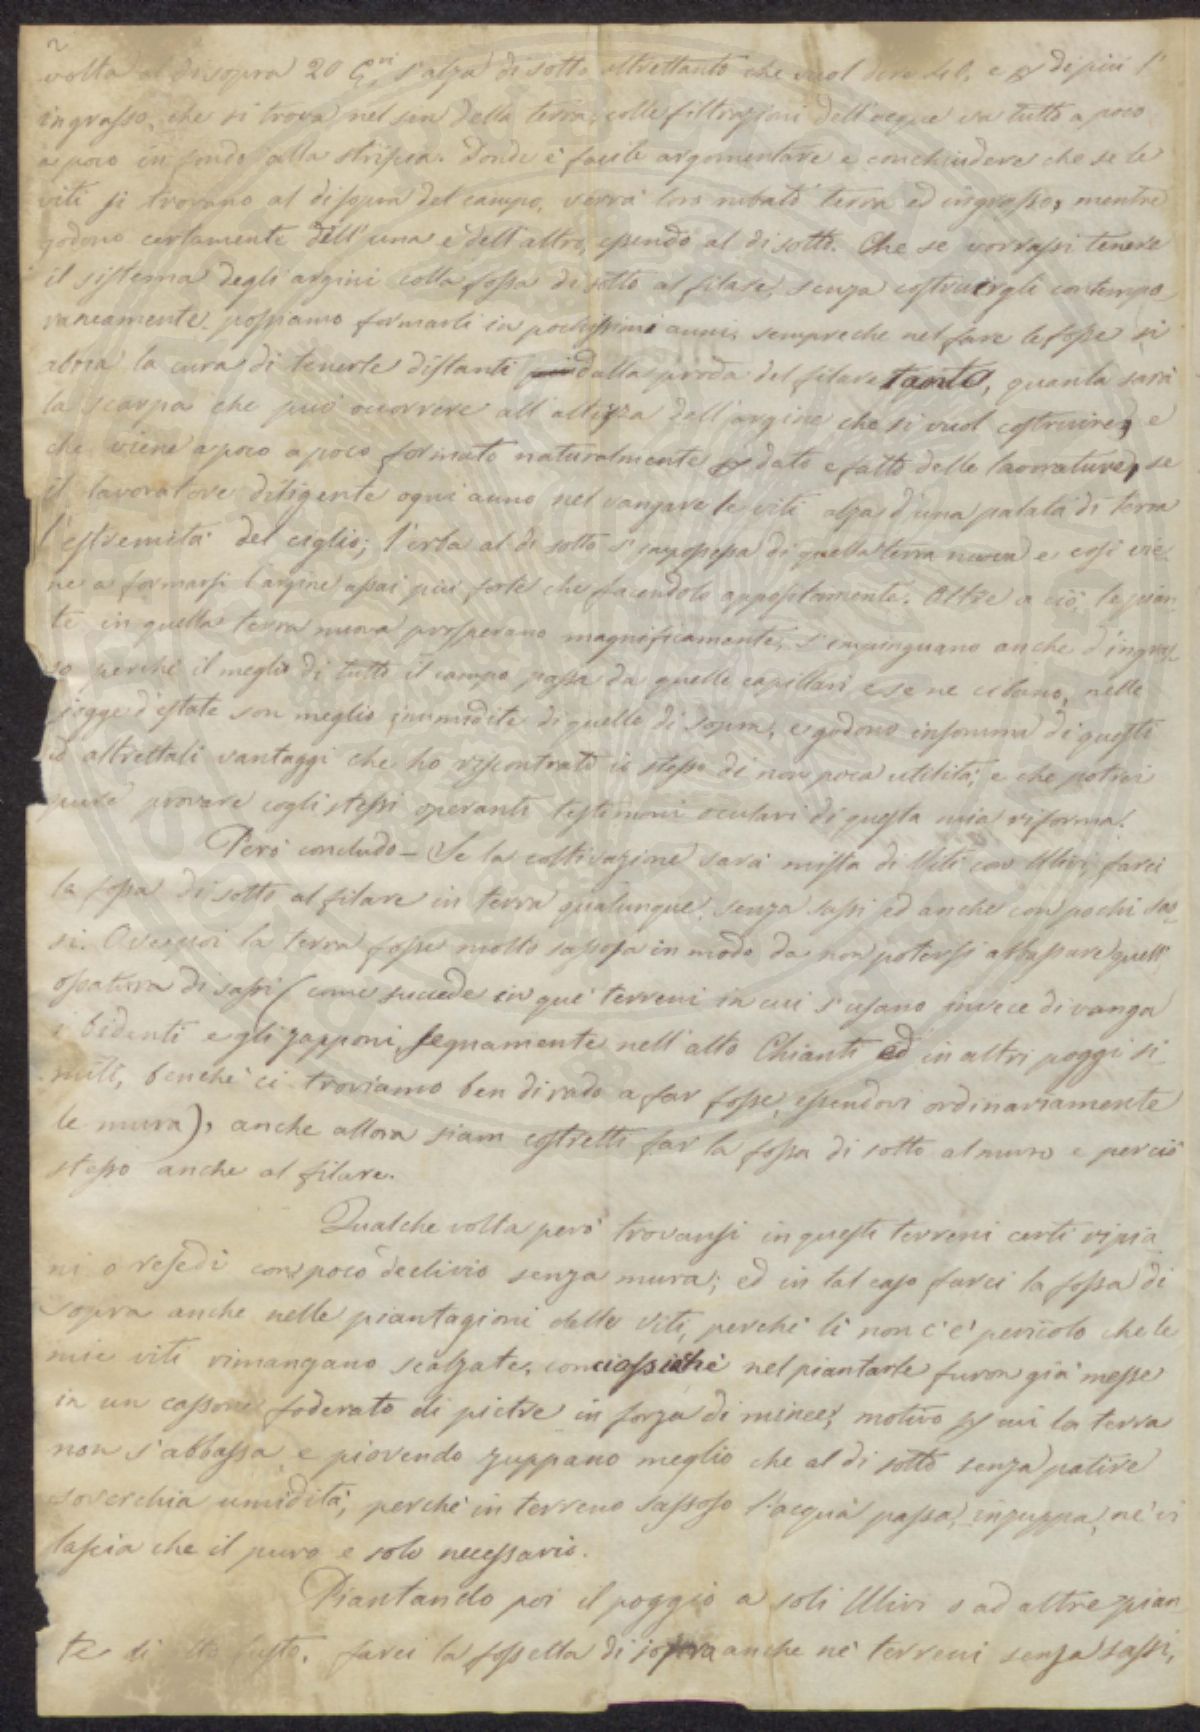 2
volta al disopra 20 C.ni s'alza di sotto altrettanto che vuol dire e di più l'
ingrasso, che si trova nel sen della terra, colle filtrazioni dell'acque va tutto a poco
a poco in fondo alla striscia. Donde è facile argomentare e conchiudere che se le
viti si trovano al disopra del campo, verrà loro rubato terra ed ingrasso, mentre
godono certamente dell'una e dell'altro, essendo al di sotto. Che se vorrassi tenere
il sistema degli argini colla fossa di sotto al filare, senza costruirgli contempo-
raneamente, possiamo formarli in pochissimi anni, sempreche nel fare le fosse si
abbia la cura di tenerle distanti dalla proda del filare tanto, quanta sarà
la scarpa che può occorrere all'altezza dell'argine che si vuol costruire, e
che viene a poco a poco formato naturalmente dato e fatto delle lavorature, se
il lavoratore diligente ogni anno nel vangare le viti alza d'una palata di terra
l'estremità del ciglio; l'erba al di sotto s'impossessa di quella terra nuova e così vie-
ne a formarsi l'argine assai più forte che facendolo appostamente. Oltre a ciò, le pian-
te in quella terra nuova prosperano magnificamente, s'impinguano anche d'ingras-
so perchè il meglio di tutto il campo passa da quelle capillari e se ne cibano, nelle
piogge d'estate son meglio inumidite di quelle di sopra, e godono insomma di questi
ed altrettali vantaggi che ho riscontrato io stesso di non poca utilità; e che potrei
pure provare cogli stessi operanti testimoni oculari di questa mia riforma.
Però concludo – Se la coltivazione sarà mista di Viti con Ulivi, farei
la fossa di sotto al filare in terra qualunque, senza sassi ed anche con pochi sas-
si. Ove poi la terra fosse molto sassosa in modo da non potersi abbassare quell'
ossatura di sassi (come succede in que' terreni in cui s'usano invece di vanga
i bidenti e gli zapponi, segnamente nell'alto Chianti ed in altri poggi si-
mili, benchè ci troviamo ben di rado a far fosse, essendovi ordinariamente
le mura), anche allora siam costretti far la fossa di sotto al muro e perciò
stesso anche al filare.
Qualche volta però trovansi in questi terreni certi ripia-
ni o resedi con poco declivio senza mura; ed in tal caso farei la fossa di
sopra anche nelle piantagioni delle Viti, perchè lì non c'è pericolo che le
mie viti rimangano scalzate, conciossiachè nel piantarle furon già messe
in un cassone foderato di pietre in forza di mine, motivo p cui la terra
non s'abbassa e piovendo zuppano meglio che al di sotto senza patire
soverchia umidità, perchè in terreno sassoso l'acqua passa, inzuppa, nè vi
lascia che il puro e solo necessario.
Piantando poi il poggio a soli Ulivi o ad altre pian-
te di alto fusto, farei la fossetta di sopra anche ne' terreni senza sassi,